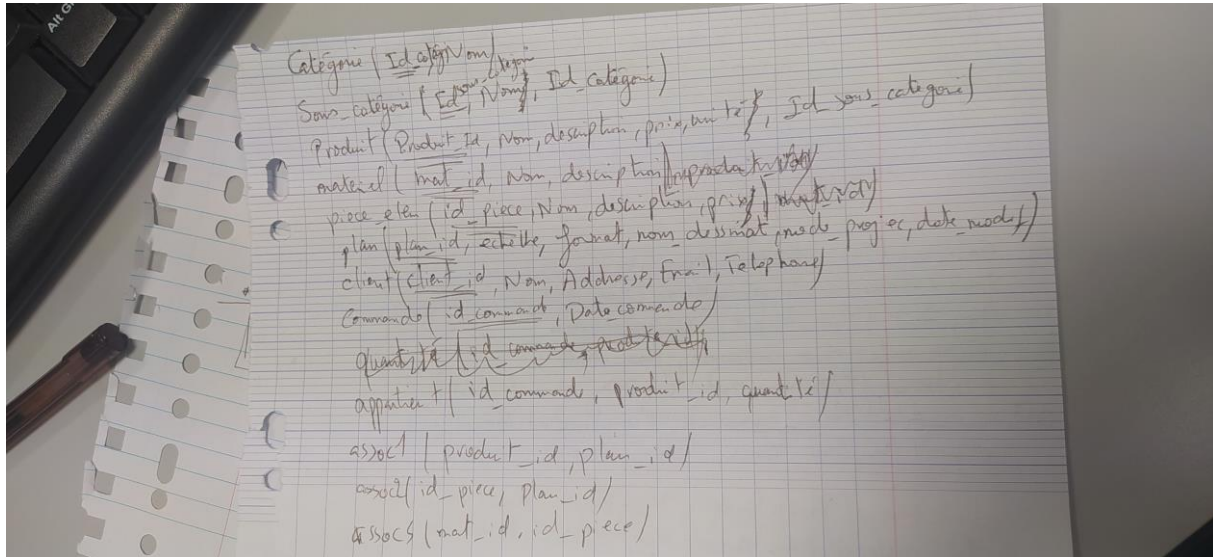 Alt Gr
Catégorie (Id_catég Nom)
Sous_catégorie (Id sous_catégorie, Nom, Id_catégorie)
Produit (Produit_Id, Nom, description, prix, unité, Id_sous_categorie)
materiel (mat_id, Nom, description)
piece_elem (id_piece, Nom, description, prix)
plan (plan_id, echelle, format, nom_dessinat, mode_projec, date_modif)
client (client_id, Nom, Addresse, Email, Telephone)
Commande (id_commande, Date_commande)
quantité (id_commande, produit_id)
appartient (id_commande, produit_id, quantité)
assoc1 (product_id, plan_id)
assoc2 (id_piece, plan_id)
assoc3 (mat_id, id_piece)